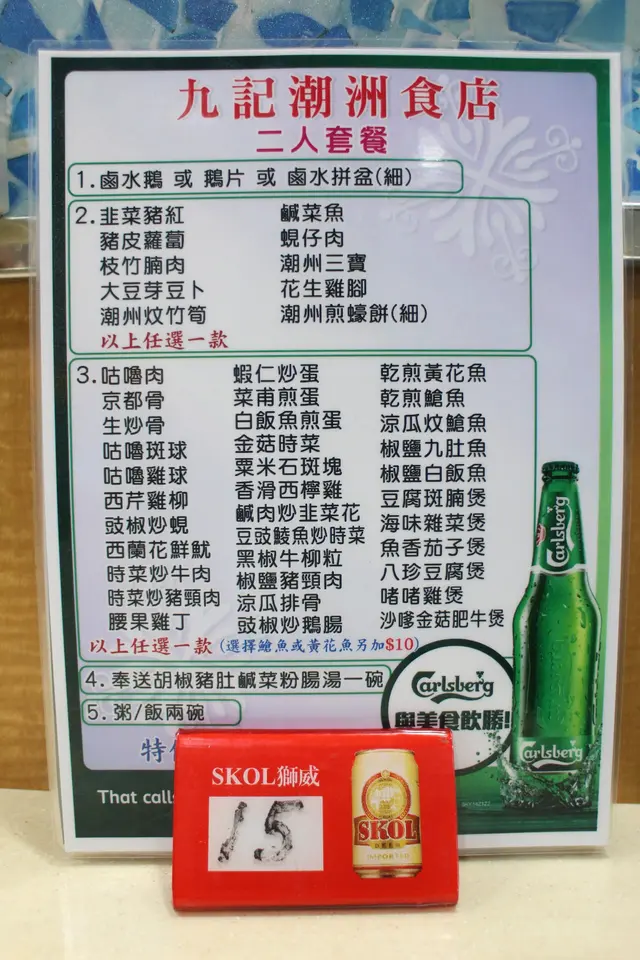 九記潮洲食店
二人套餐
1.鹵水鵝 或 鵝片 或 鹵水拼盆(細)
2.韭菜豬紅 鹹菜魚
豬皮蘿蔔 蜆仔肉
枝竹腩肉 潮州三寶
大豆芽豆卜 花生雞腳
潮州炆竹筍 潮州煎蠔餅(細)
以上任選一款
3.咕嚕肉 蝦仁炒蛋 乾煎黃花魚
京都骨 菜甫煎蛋 乾煎鱠魚
生炒骨 白飯魚煎蛋 涼瓜炆鱠魚
咕嚕斑球 金菇時菜 椒鹽九肚魚
咕嚕雞球 粟米石斑塊 椒鹽白飯魚
西芹雞柳 香滑西檸雞 豆腐斑腩煲
豉椒炒蜆 鹹肉炒韭菜花 海味雜菜煲
西蘭花鮮魷 豆豉鯪魚炒時菜 魚香茄子煲
時菜炒牛肉 黑椒牛柳粒 八珍豆腐煲
時菜炒豬頸肉 椒鹽豬頸肉 啫啫雞煲
腰果雞丁 涼瓜排骨 沙嗲金菇肥牛煲
豉椒炒鵝腸
以上任選一款 (選擇鱠魚或黃花魚另加$10)
4.奉送胡椒豬肚鹹菜粉腸湯一碗
5.粥/飯兩碗
Carlsberg
與美食飲勝!
Carlsberg
Carlsberg
特
That calls
SKOL獅威
15
SKOL